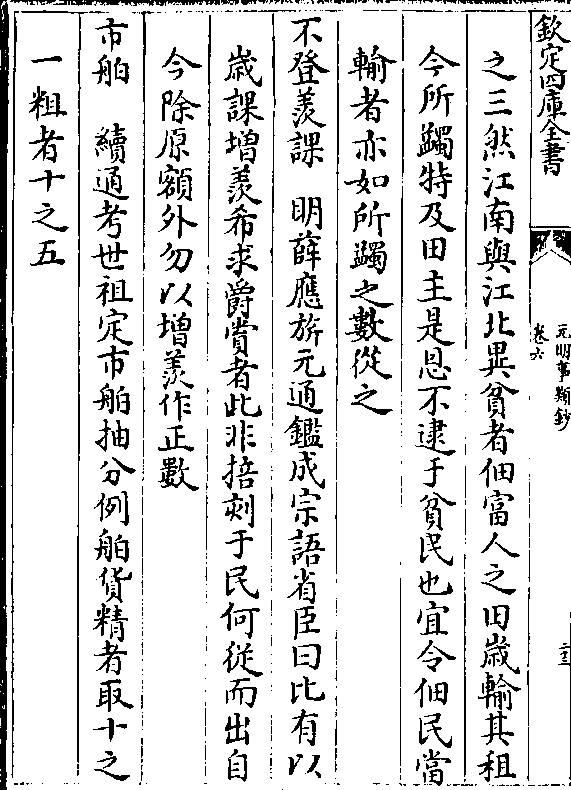 欽定四庫全書
元明事類鈔
卷六
二三
之三然江南與江北異貧者佃富人之田歲輸其租
今所蠲特及田主是恩不逮于貧民也宜令佃民當
輸者亦如所蠲之數從之
不登羨課　明薛應旂元通鑑成宗語省臣曰比有以
歲課增羨希求爵賞者此非掊剋于民何從而出自
今除原額外勿以增羨作正數
市舶　續通考世祖定市舶抽分例舶貨精者取十之
一粗者十之五